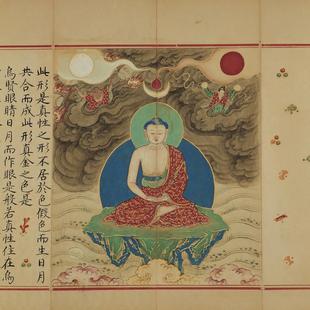 此形是真性之形不居於色假色而生日月
共合而成此形真金之色是
烏賢眼睛日月而作眼是般若真性住在烏